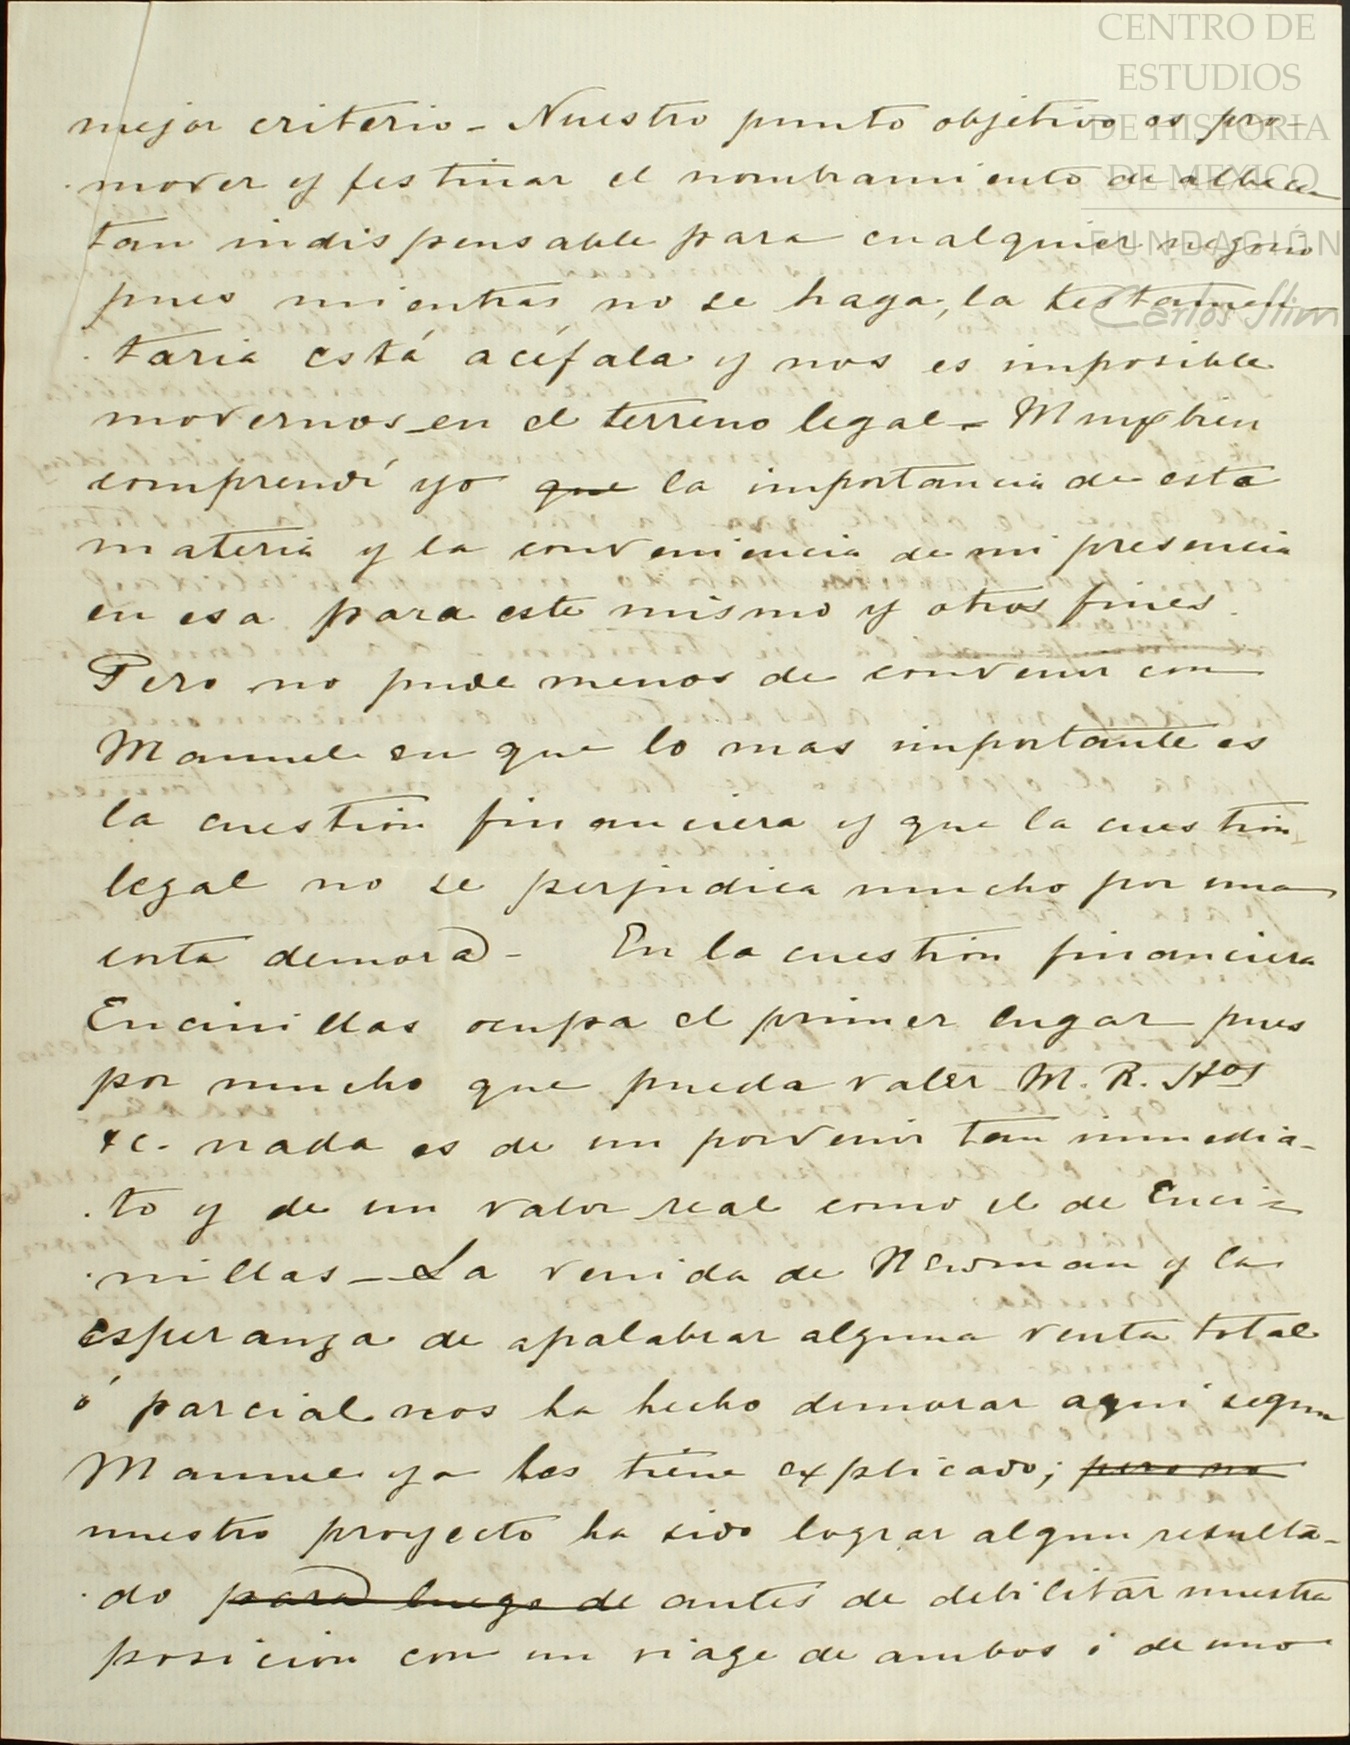 CENTRO DE
ESTUDIOS
DE HISTORIA
DE MEXICO
FUNDACIÓN
Carlos Slim
mejor criterio - Nuestro punto objetivo es pro-
mover y festinar el nombramiento de albacea
tan indispensable para cualquier negocio
pues mientras no se haga, la testamen
taria está acéfala y nos es imposible
movernos en el terreno legal - Muy bien
comprendí yo que la importancia de esta
materia y la conveniencia de mi presencia
en esa para este mismo y otros fines.
Pero no pude menos de convenir con
Manuel en que lo mas importante es
la cuestión financiera y que la cuestión
legal no se perjudica mucho por una
corta demora - En la cuestión financiera
Encinillas ocupa el primer lugar pues
por mucho que pueda valer M. R. Hos
&c. nada es de un porvenir tan inmedia-
to y de un valor real como el de Enci-
nillas - La venida de Newman y la
esperanza de apalabrar alguna venta total
ó parcial nos ha hecho demorar aqui segun
Manuel ya les tiene explicado; pero no
nuestro proyecto ha sido lograr algun resulta-
do para luego de antes de debilitar nuestra
posicion con un viage de ambos ó de uno